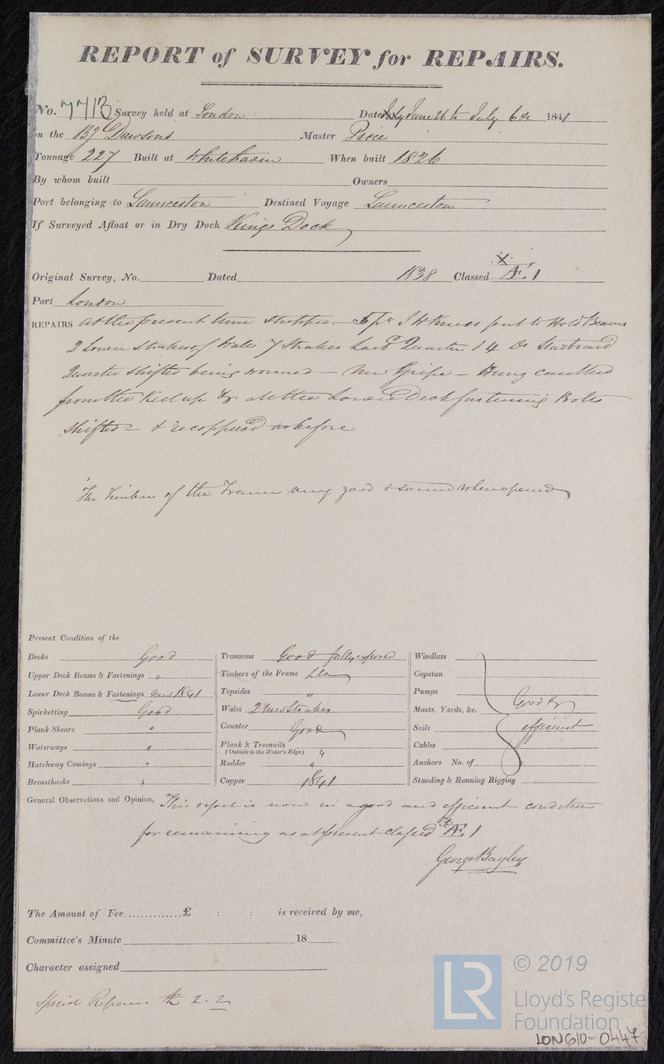 REPORT of SURVEY for REPAIRS.
No. 7713 Survey held at London Date July June 26 to July 6th 1841
on the Bg Dawsons Master Price
Tonnage 227 Built at Whitehaven When built 1826
By whom built Owners
Port belonging to Launceston Destined Voyage Launceston
If Surveyed Afloat or in Dry Dock Kings Dock
Original Survey, No. Dated 1838 Classed Æ 1
Port London
REPAIRS At the present time stripped 5 pr I W Knees put to Hold Beams
2 Lower Strakes of Wales 7 Strakes Larb Quarter & 4 Do Starboard
Quarter shifted being wormed - New Gripe - caulked
from the Keel up & all the Lower Deck fastening Bolts
shifted & recoppered as before
The Timbers of the Frame very good & sound when opened
Present Condition of the
Decks Good
Upper Deck Beams & Fastenings "
Lower Deck Beams & Fastenings New 1841
Spirketting Good
Plank Shears "
Waterways "
Hatchway Comings "
Breasthooks "
Transoms Good
Timbers of the Frame Do
Topsides "
Wales 2 New Strakes
Counter Good
Plank & Treenails "
(Outside to the Water's Edge)
Rudder "
Copper 1841
Windlass
Capstan
Pumps
Masts, Yards, &c. Good &
Sails efficient
Cables
Anchors No. of
Standing & Running Rigging
General Observations and Opinion, This report is now in a good and efficient condition
for remaining as at present classed Æ 1
George Bayley
The Amount of Fee.............£ : : is received by me,
Committee's Minute 18
Character assigned
Special Repairs
© 2019
LR
Lloyd's Register
Foundation
LON610-0447